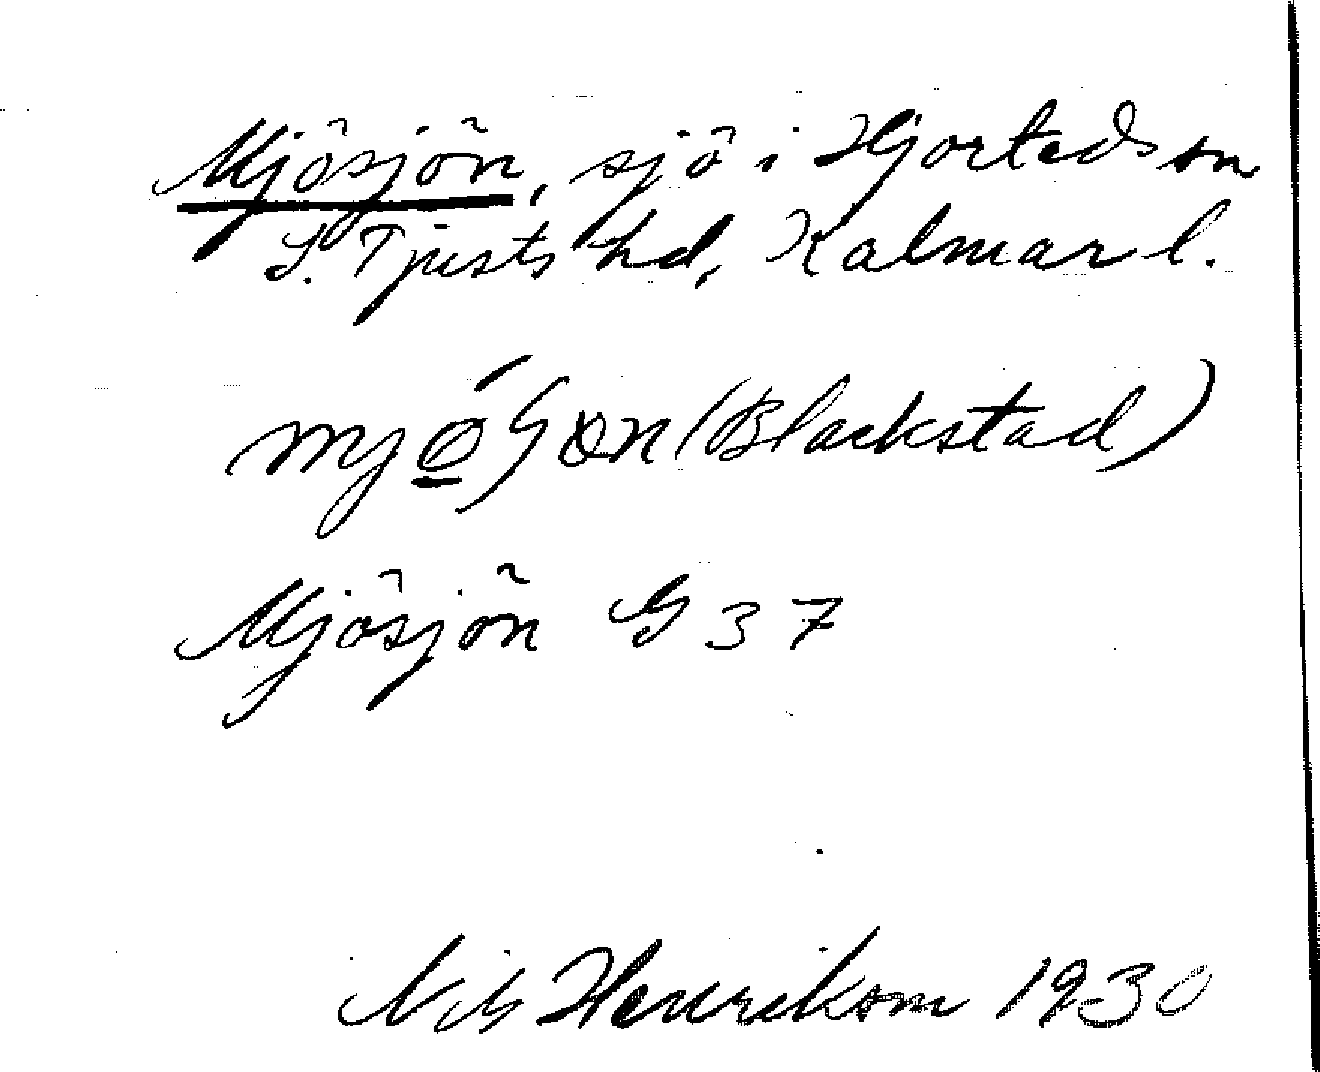 Mjösjön, sjö i Hjorteds sn
S. Tjusts hd, Kalmar l.
(Blackstad)
Mjösjön G 37
Nils Henrikson 1930